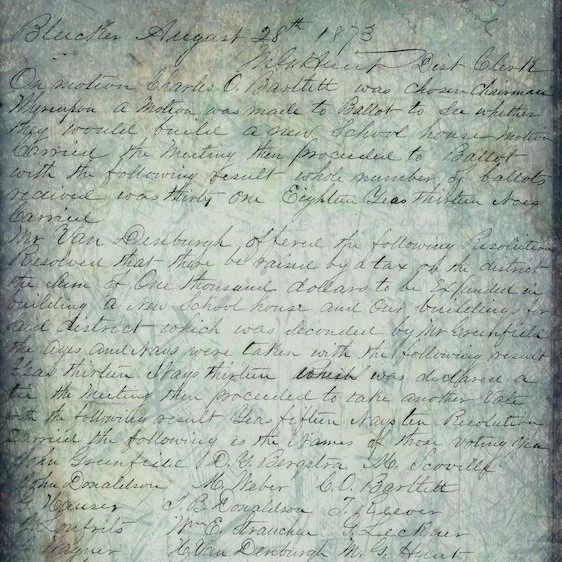 Bleecker August 28th 1873
M. G. Hunt Dist Clerk
On motion Charles O. Bartlett was chosen Chairman
Whereupon a motion was made to Ballot to See whether
they would build a new School house motion
Carried the Meeting then proceeded to Ballot
with the following result whole number of ballots
recived was thirty one Eighteen Yeas thirteen Noes
Carried
Mr Van Denburgh, offered the following Resolution
Resolved that there be raised by a tax on the district
the Sum of One thousand dollars to be Expended in
building a New School house and Out buildings for
Said district which was Seconded by Mr Greenfield
the ayes and Nays were taken with the following result
Yeas thirteen Nays thirteen which was declared a
tie the Meeting then proceeded to take another Vote
with the following result Yeas fifteen Nays ten Resolution
Carried the following is the Names of those voting Yea
John Greenfield D. Y. Bergstra M. Scoville
John Donaldson M. Weber C. O. Bartlett
Hauser J. B. Donaldson J. Keever
Wm E. Straucher G. Leckner
Wagner H. Van Denburgh M. G. Hunt